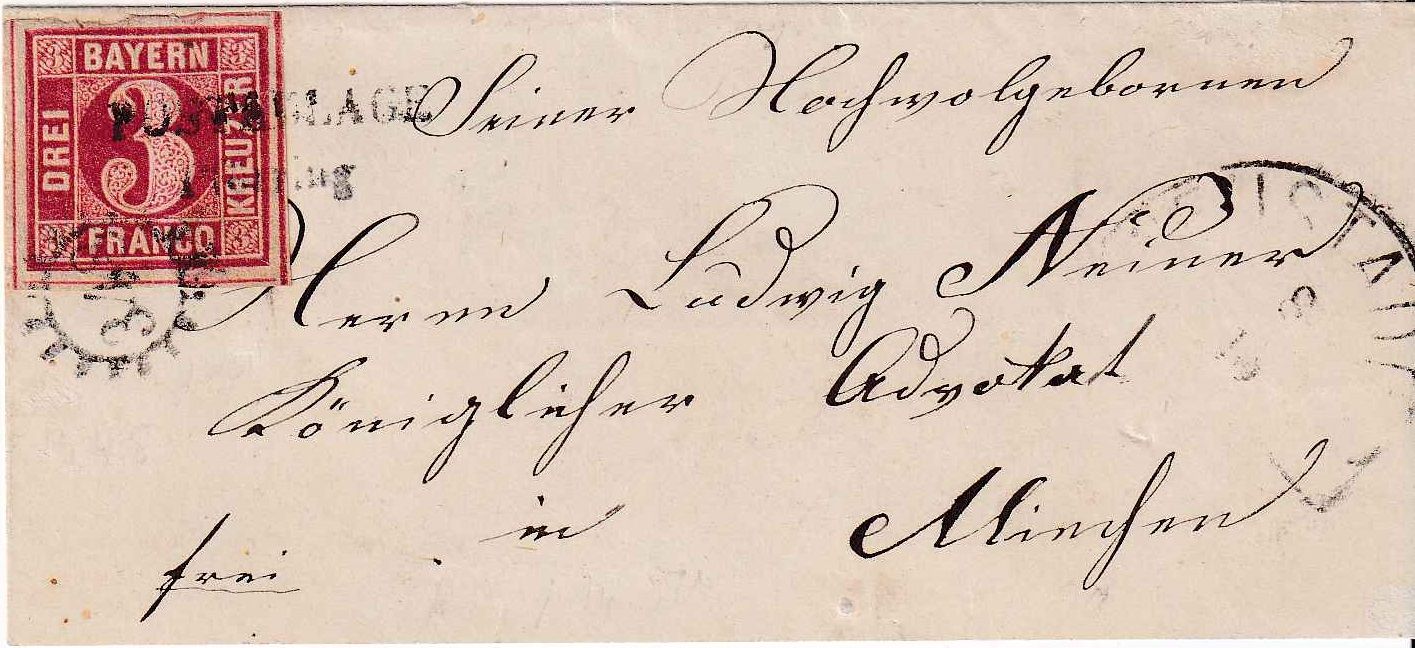 BAYERN
DREI
3
KREUZER
FRANCO
POSTABLAGE
Seiner Hochwolgebornen
Herrn Ludwig Neiner
Königlicher Advokat
in
frei
NEUSTADT